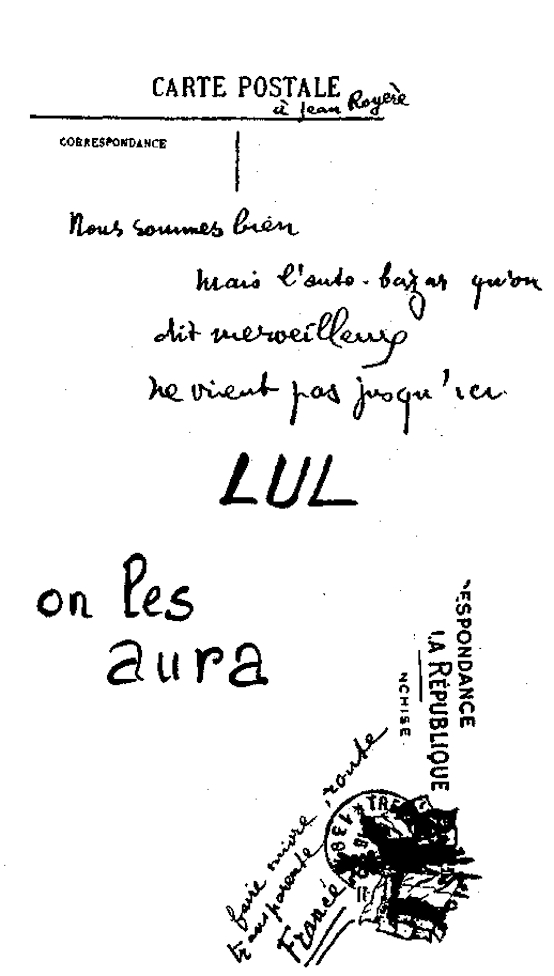 CARTE POSTALE
à Jean Royère
CORRESPONDANCE
Nous sommes bien
mais l'auto-bazar qu'on
dit merveilleux
ne vient pas jusqu'ici
LUL
on les
aura
ESPONDANCE
LA RÉPUBLIQUE
NCHISE
faire suivre, route
transparente
France
TRE
138